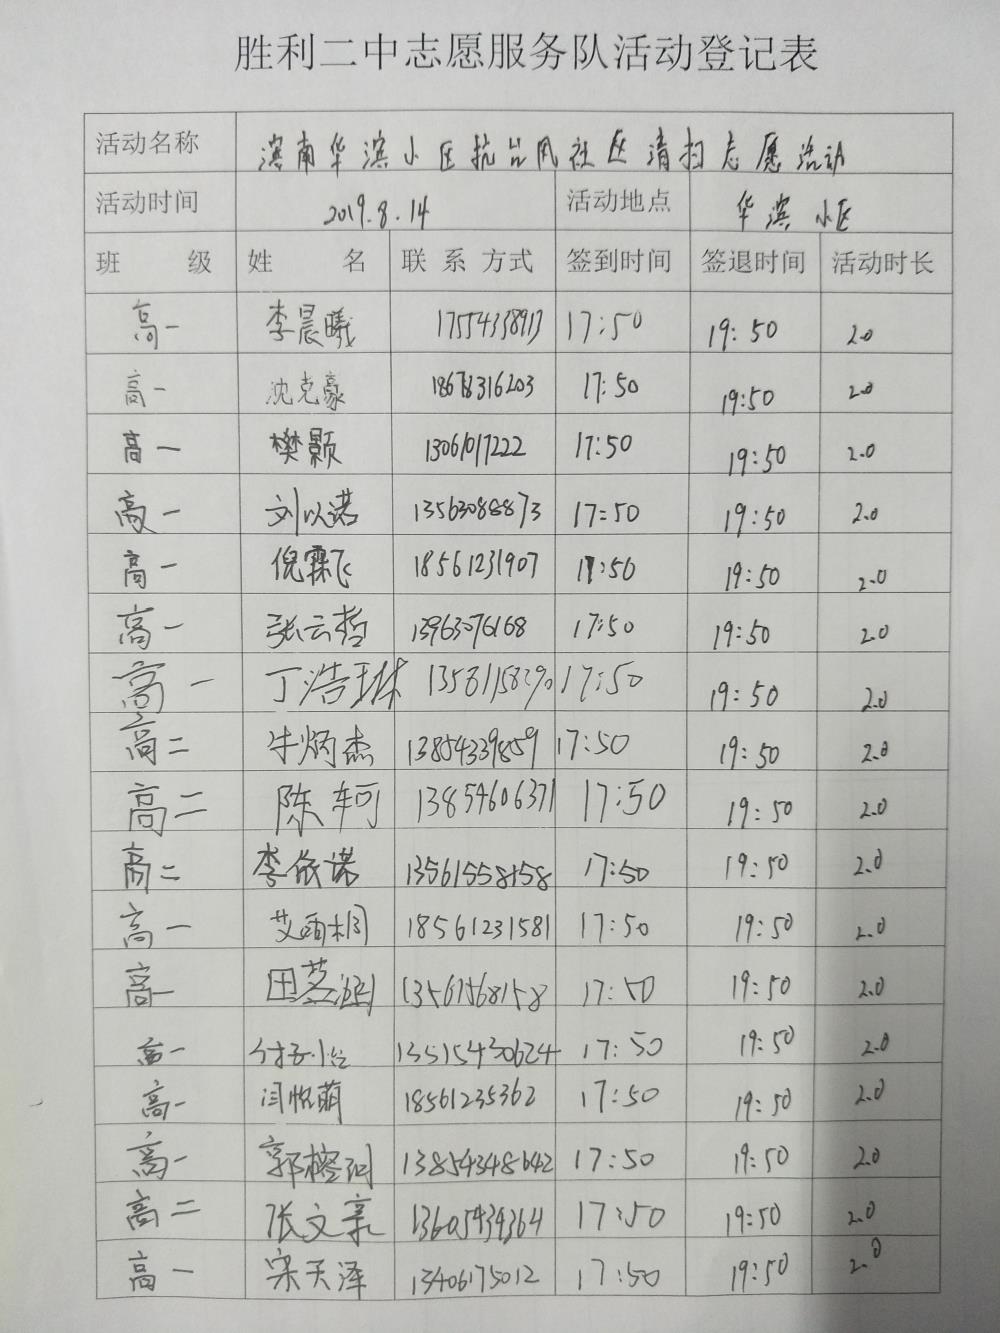 胜利二中志愿服务队活动登记表
活动名称 滨南华滨小区抗台风社区清扫志愿活动
活动时间 2019.8.14 活动地点 华滨小区
班 级 姓 名 联系方式 签到时间 签退时间 活动时长
高一 李晨曦 17554338913 17:50 19:50 2.0
高一 沈克豪 18678316203 17:50 19:50 2.0
高一 樊颢 13061017222 17:50 19:50 2.0
高一 刘以诺 13563088873 17:50 19:50 2.0
高一 倪霖飞 18561231907 17:50 19:50 2.0
高一 张云哲 13963076168 17:50 19:50 2.0
高一 丁浩琳 17:50 19:50 2.0
高二 牛炳杰 13854339859 17:50 19:50 2.0
高二 陈轲 13854606371 17:50 19:50 2.0
高二 李依诺 13561558158 17:50 19:50 2.0
高一 艾雨桐 18561231581 17:50 19:50 2.0
高一 田茗涵 13561568158 17:50 19:50 2.0
高一 付子怡 13515430624 17:50 19:50 2.0
高一 闫怡萌 18561235362 17:50 19:50 2.0
高一 郭榕 13854348642 17:50 19:50 2.0
高二 张文豪 13605434364 17:50 19:50 2.0
高一 宋天泽 13406175012 17:50 19:50 2.0